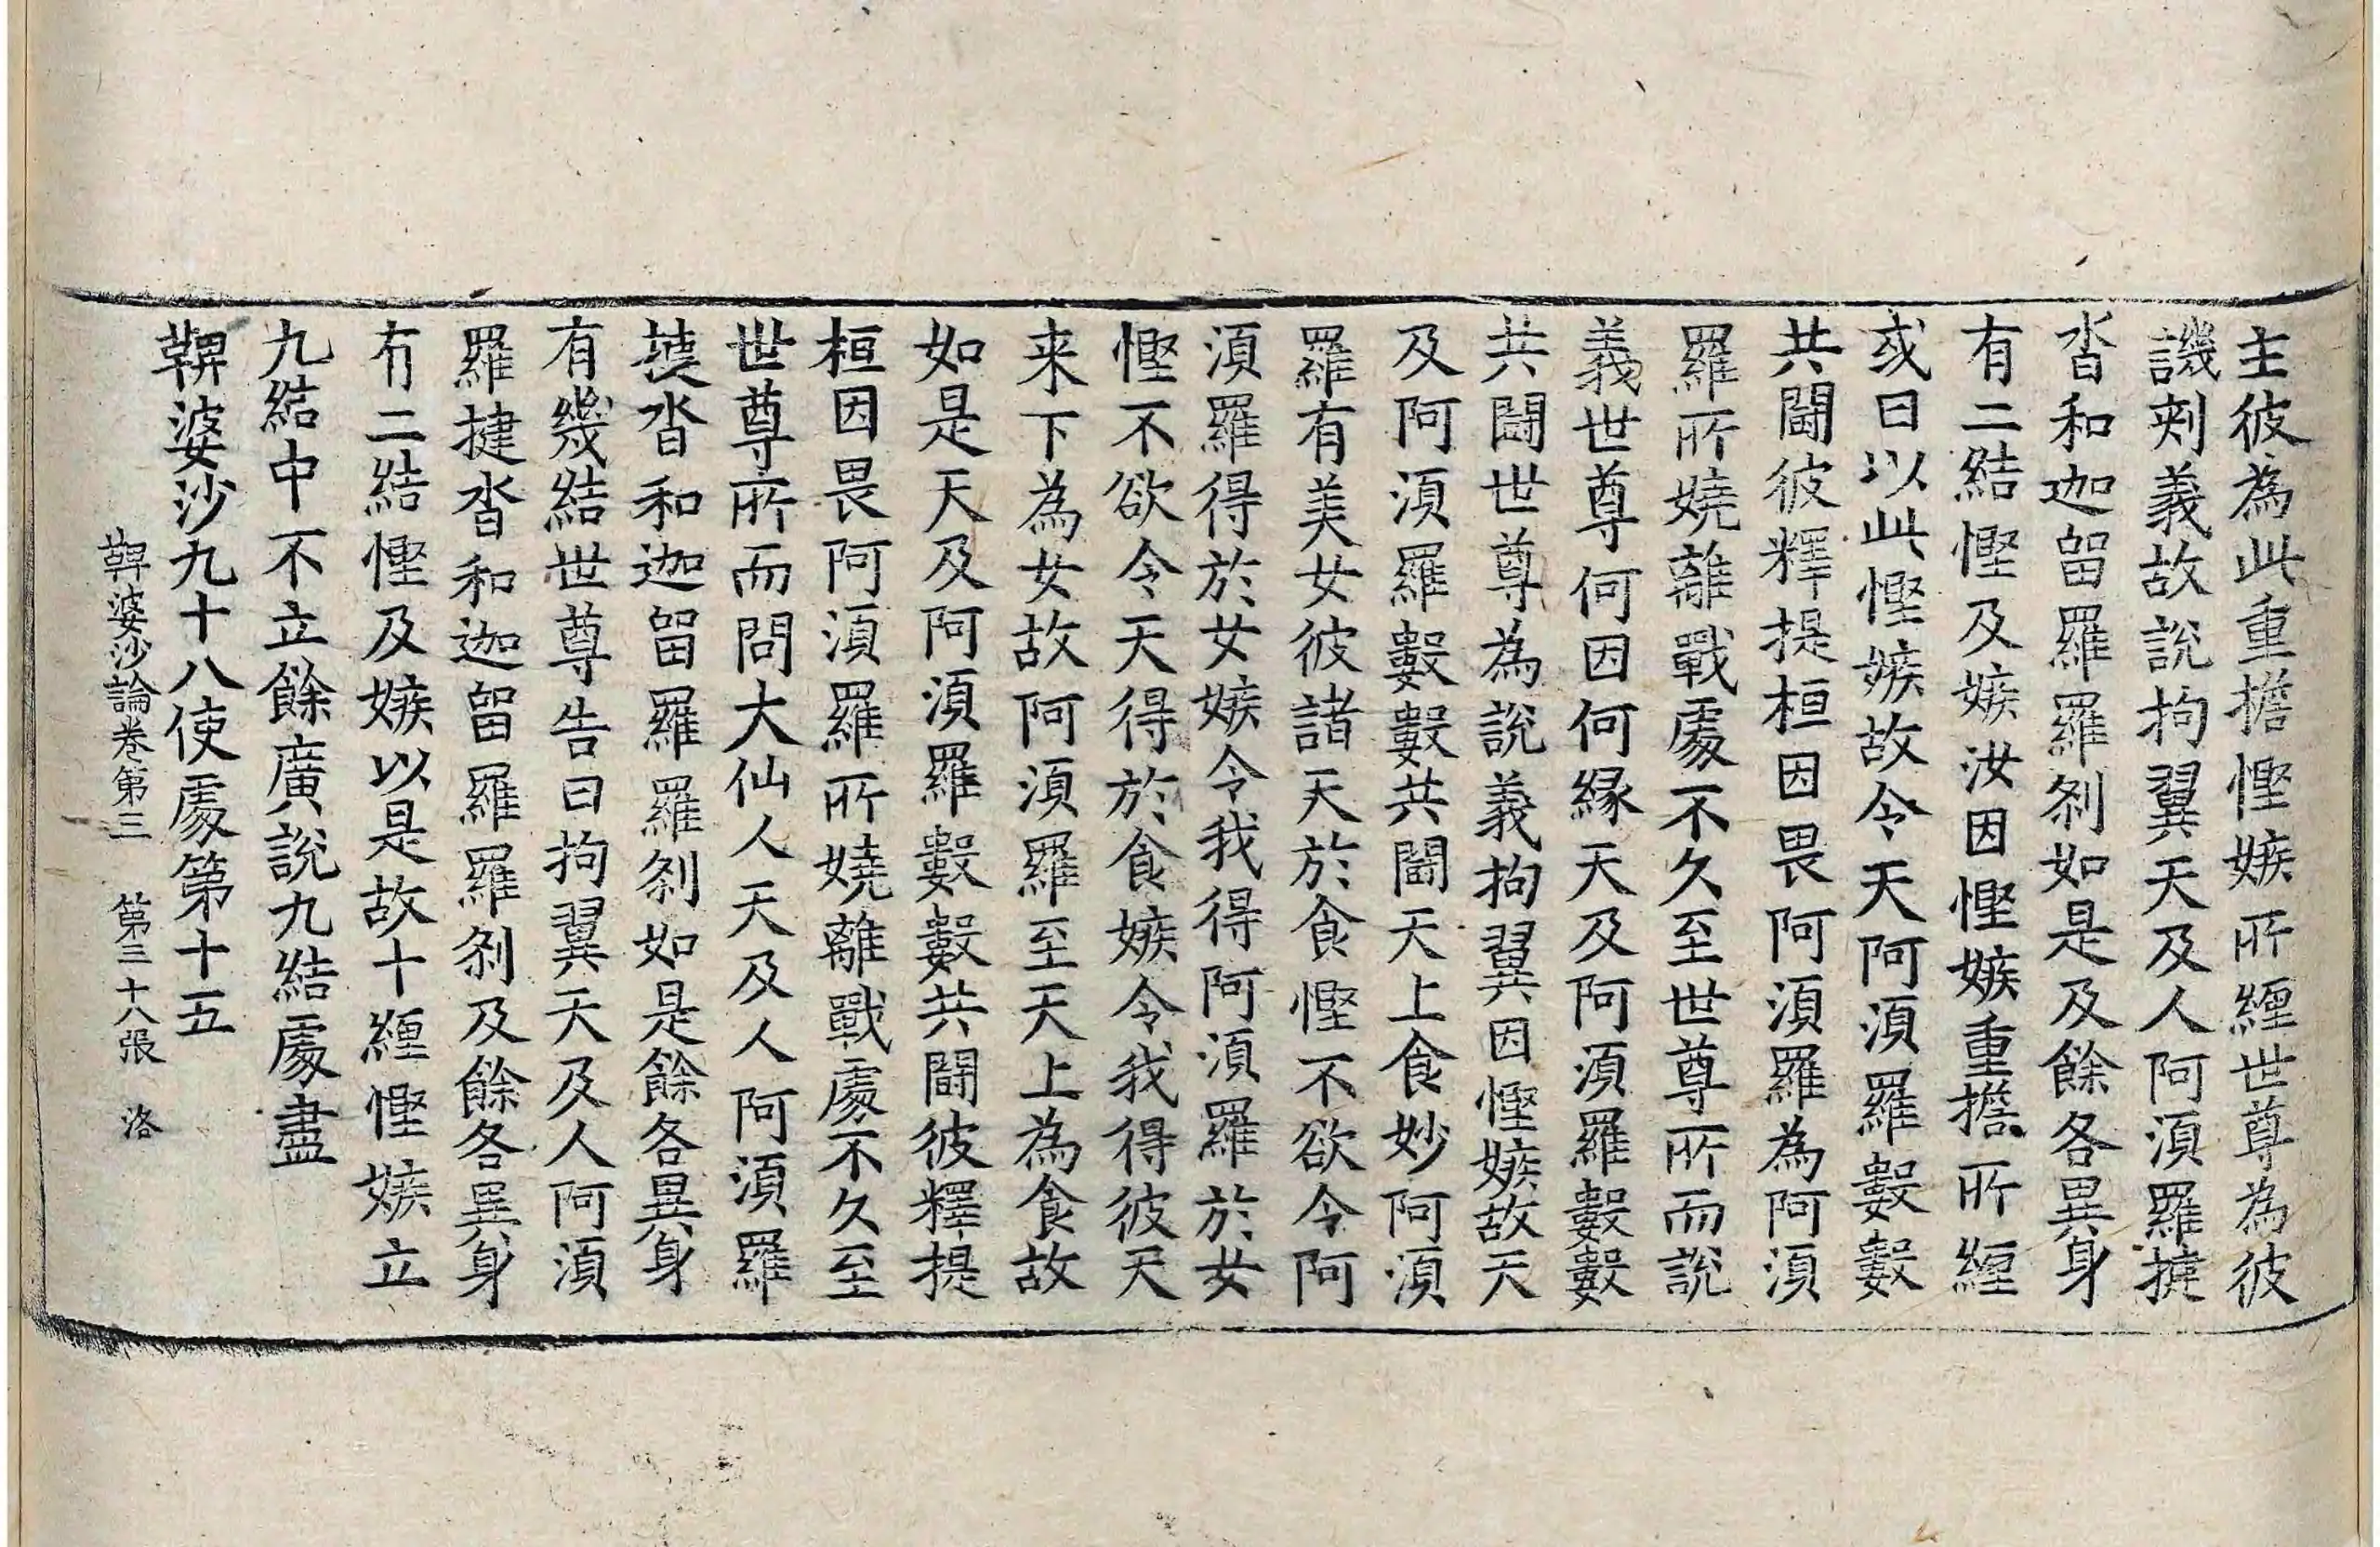 主彼為此重擔慳嫉所纏世尊為彼
譏刾義故說拘翼天及人阿湏羅揵
沓和迦留羅羅剎如是及餘各異身
有二結慳及嫉汝因慳嫉重擔所纏
或曰以此慳嫉故令天阿湏羅數數
共鬪彼釋提桓因畏阿湏羅為阿湏
羅所嬈離戰處不久至世尊所而說
義世尊何因何緣天及阿湏羅數數
共鬪世尊為說義拘翼因慳嫉故天
及阿湏羅數數共鬪天上食妙阿湏
羅有美女彼諸天於食慳不欲令阿
湏羅得於女嫉令我得阿湏羅於女
慳不欲令天得於食嫉令我得彼天
来下為女故阿湏羅至天上為食故
如是天及阿湏羅數數共鬪彼釋提
桓因畏阿湏羅所嬈離戰處不久至
世尊所而問大仙人天及人阿湏羅
揵沓和迦留羅羅剎如是餘各異身
有幾結世尊告曰拘翼天及人阿湏
羅揵沓和迦留羅羅剎及餘各異身
有二結慳及嫉以是故十纏慳嫉立
九結中不立餘廣說九結處盡
鞞婆沙九十八使處第十五
鞞婆沙論卷第三 第三十八張 洛